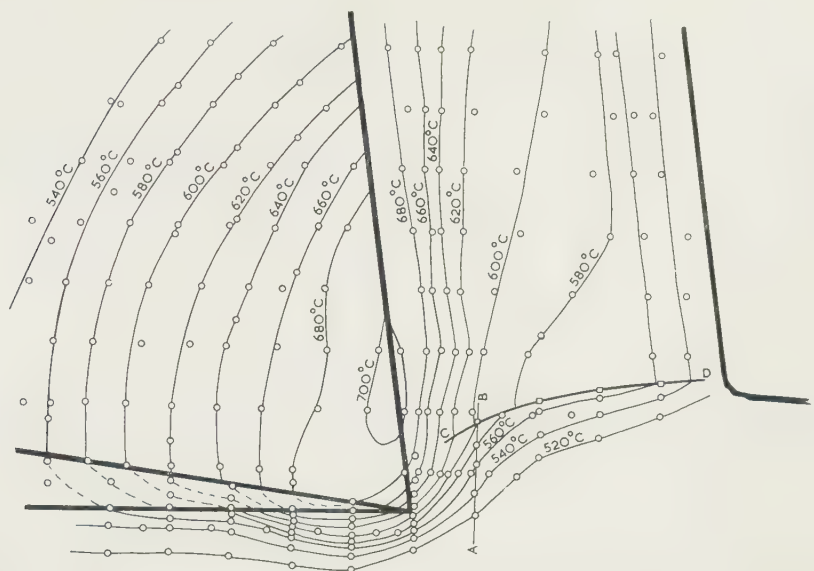 540°C
560°C
580°C
600°C
620°C
640°C
660°C
680°C
700°C
680°C
660°C
640°C
620°C
600°C
580°C
560°C
540°C
520°C
A
B
C
D